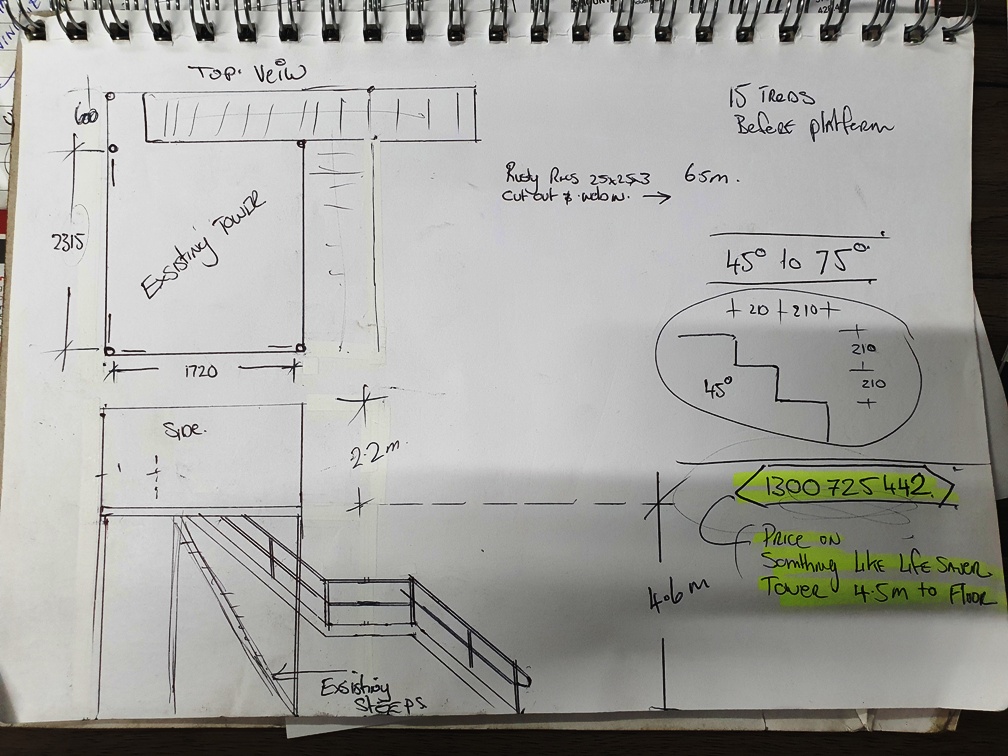 TOP. VeiW
600
2315
1720
Exsisting TOWER
15 Treds
Before platform
RHS 25x25x3
65m.
cut out &
45° to 75°
+ 210 + 210 +
210
210
45°
Side.
2.2m
1300 725 442
PRICE ON
Somthing LIKE LIFE SAVER
TOWER 4.5m to Floor
4.6m
Exsisting
SteePs